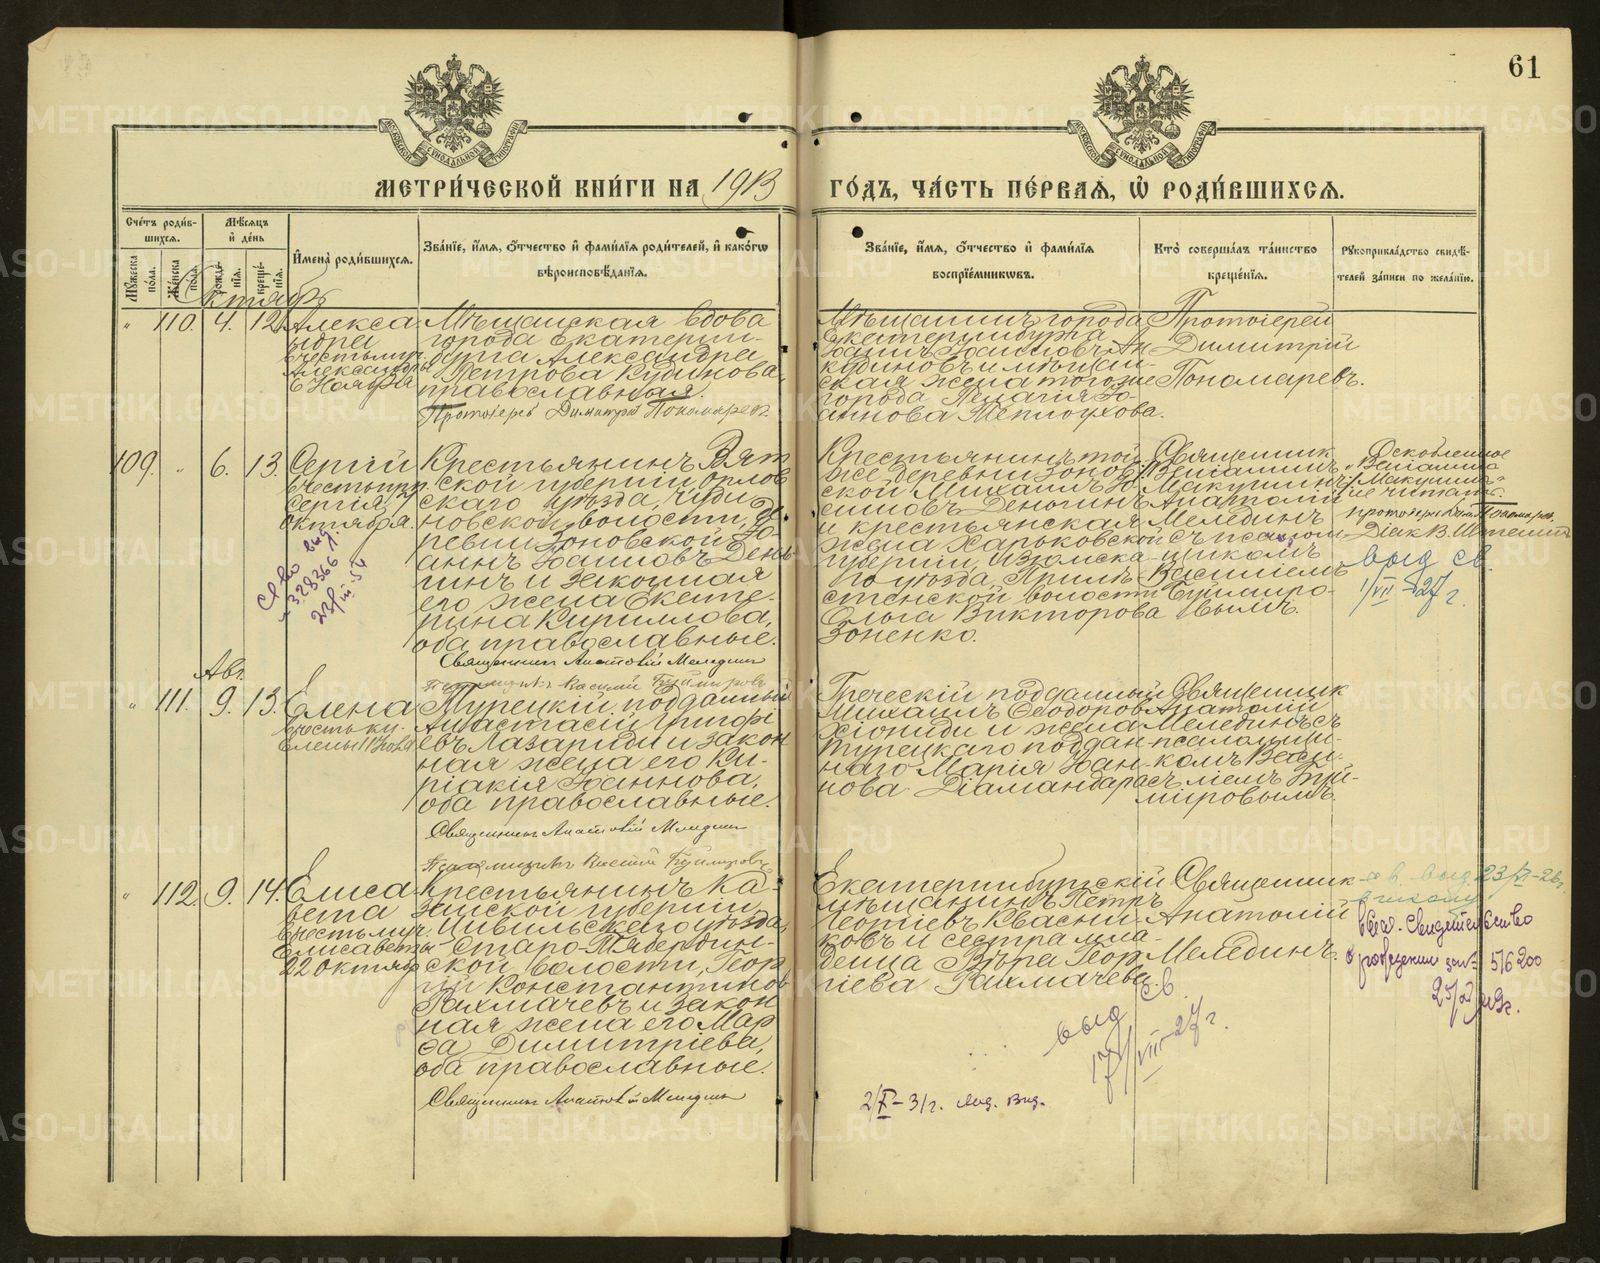 61
МЕТРИ́ЧЕСКОЙ КНИ́ГИ НА 1913 ГО́ДЪ, ЧА́СТЬ ПЕ́РВАЯ, Ѡ РОДИ́ВШИХСЯ.
Счетъ родившихся.
Мужеска пола.
Женска пола.
Мѣсяцъ и день
рожденія.
крещенія.
Имена родившихся.
Званіе, имя, отчество и фамилія родителей, и какогѡ
вѣроисповѣданія.
Званіе, имя, отчество и фамилія
воспріемниковъ.
Кто совершалъ таинство
крещенія.
Рукоприкладство свидѣ-
телей записи по желанію.
Октябрь
" 110. 4. 12.
Алекса-
ндра
въ честь муч.
Александры
6 Ноября
Мѣщанская вдова
города Екатерин-
бурга Александра
Петрова Кудинова,
православная.
Протоіерей Димитрій Пономаревъ.
Мѣщанинъ города
Екатеринбурга
Іоаннъ Іоанновъ Ан
кудиновъ и мѣщан-
ская жена того же
города Пелагія Іо-
аннова Теплоухова.
Протоіерей
Димитрій
Пономаревъ.
109. " 6. 13.
Сергій
въ честь прп.
Сергія, 7
октября.
Св-во выд.
№ 328366
23/III-54
Крестьянинъ Вят-
ской губерніи, Орлов
скаго уѣзда, Чуди-
новской волости, де-
ревни Зоновской Іо-
аннъ Іоанновъ День
гинъ и законная
его жена Екате-
рина Кириллова,
оба православные.
Священникъ Анатолій Мелединъ
Псаломщикъ Василій Буймировъ
Крестьянинъ той
же деревни Зонов-
ской Михаилъ Іо-
сифовъ Деньгинъ
и крестьянская
жена Харьковской
губерніи, Изюмска-
го уѣзда,
стенской волости
Ольга Викторова
Зоненко.
Священник
Веніаминъ
Макушинъ
Анатолій
Мелединъ
съ псалом-
щикомъ
Василіемъ
Буймиро-
вымъ.
Оскобленное
"Веніаминъ
Макушинъ"
не читать.
протоіерей Дим. Пономаревъ.
выд св.
1/VII-27 г.
Авг.
" 111. 9. 13.
Елена
въ честь ц.
Елены
Турецкій подданный
Анастасій Григорі
евъ Лазариди и закон
ная жена его Ки-
ріакія Іоаннова,
оба православные.
Священникъ Анатолій Мелединъ
Псаломщикъ Василій Буймировъ
Греческій подданный
Михаилъ Ѳеодоровъ
Хіониди и жена
турецкаго поддан-
наго Марія Іоан-
нова Діамандарасъ
Священник
Анатолій
Мелединъ съ
псаломщи-
комъ Васи-
ліемъ Буй-
мировымъ.
" 112. 9. 14.
Елиса-
вета
въ честь муч.
Елисаветы
22 октября
Крестьянинъ Ка-
занской губерніи,
Цивильскаго уѣзда,
Старо-Тябердин-
ской волости, Геор
гій Константинов
Рахмачевъ и закон
ная жена его Мар
ѳа Димитріева,
оба православные.
Священникъ Анатолій Мелединъ
Екатеринбургскій
мѣщанинъ Петръ
Георгіевъ Квасни-
ковъ и сестра мла-
денца Вѣра Геор-
гіева Рахмачева.
Священник
Анатолій
Мелединъ.
выд св
17/VIII-27 г.
2/X-31г.
выд. 23/VI-26г.
Выд. свидетельство
о рождении за № 516200